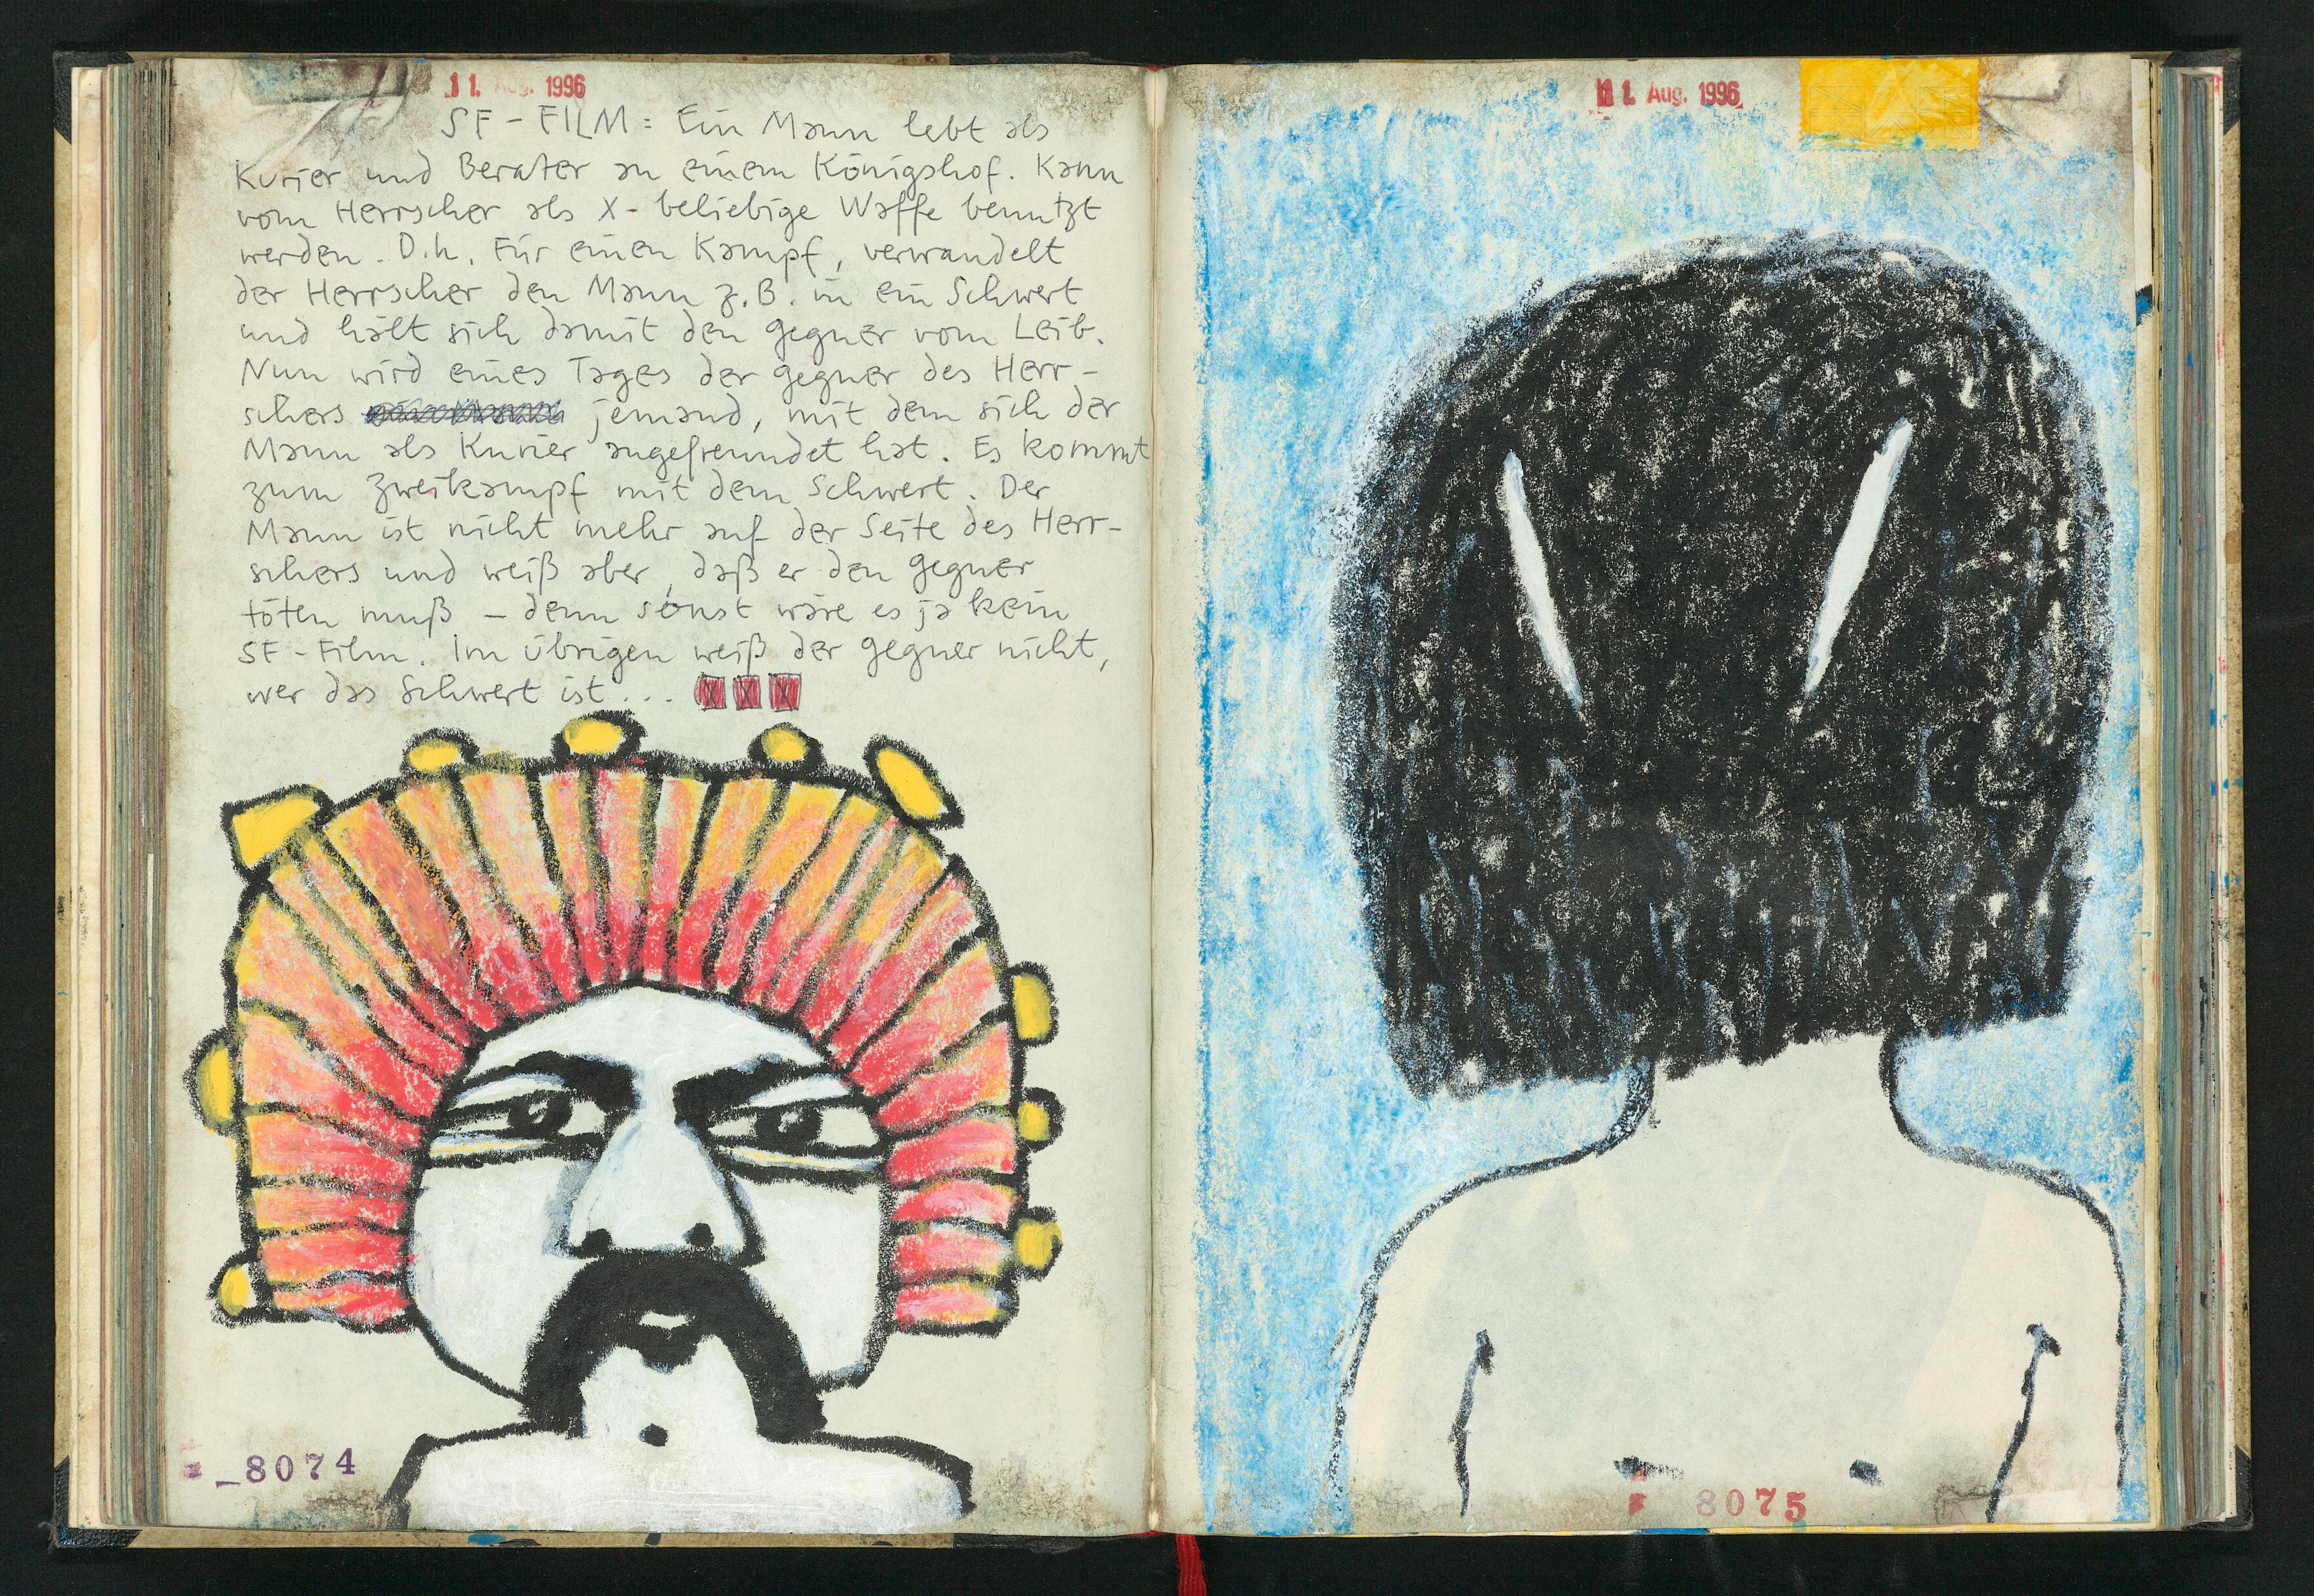 11. Aug. 1996
SF-FILM: Ein Mann lebt als
Kurier und Berater an einem Königshof. Kann
vom Herrscher als X-beliebige Waffe benutzt
werden. D.h. Für einen Kampf, verwandelt
der Herrscher den Mann z.B. in ein Schwert
und hält sich damit den Gegner vom Leib.
Nun wird eines Tages der Gegner des Herr-
schers jemand, mit dem sich der
Mann als Kurier angefreundet hat. Es kommt
zum Zweikampf mit dem Schwert. Der
Mann ist nicht mehr auf der Seite des Herr-
schers und weiß aber, daß er den Gegner
töten muß – denn sonst wäre es ja kein
SF-Film. Im Übrigen weiß der Gegner nicht,
wer das Schwert ist...
_8074
11. Aug. 1996
8075